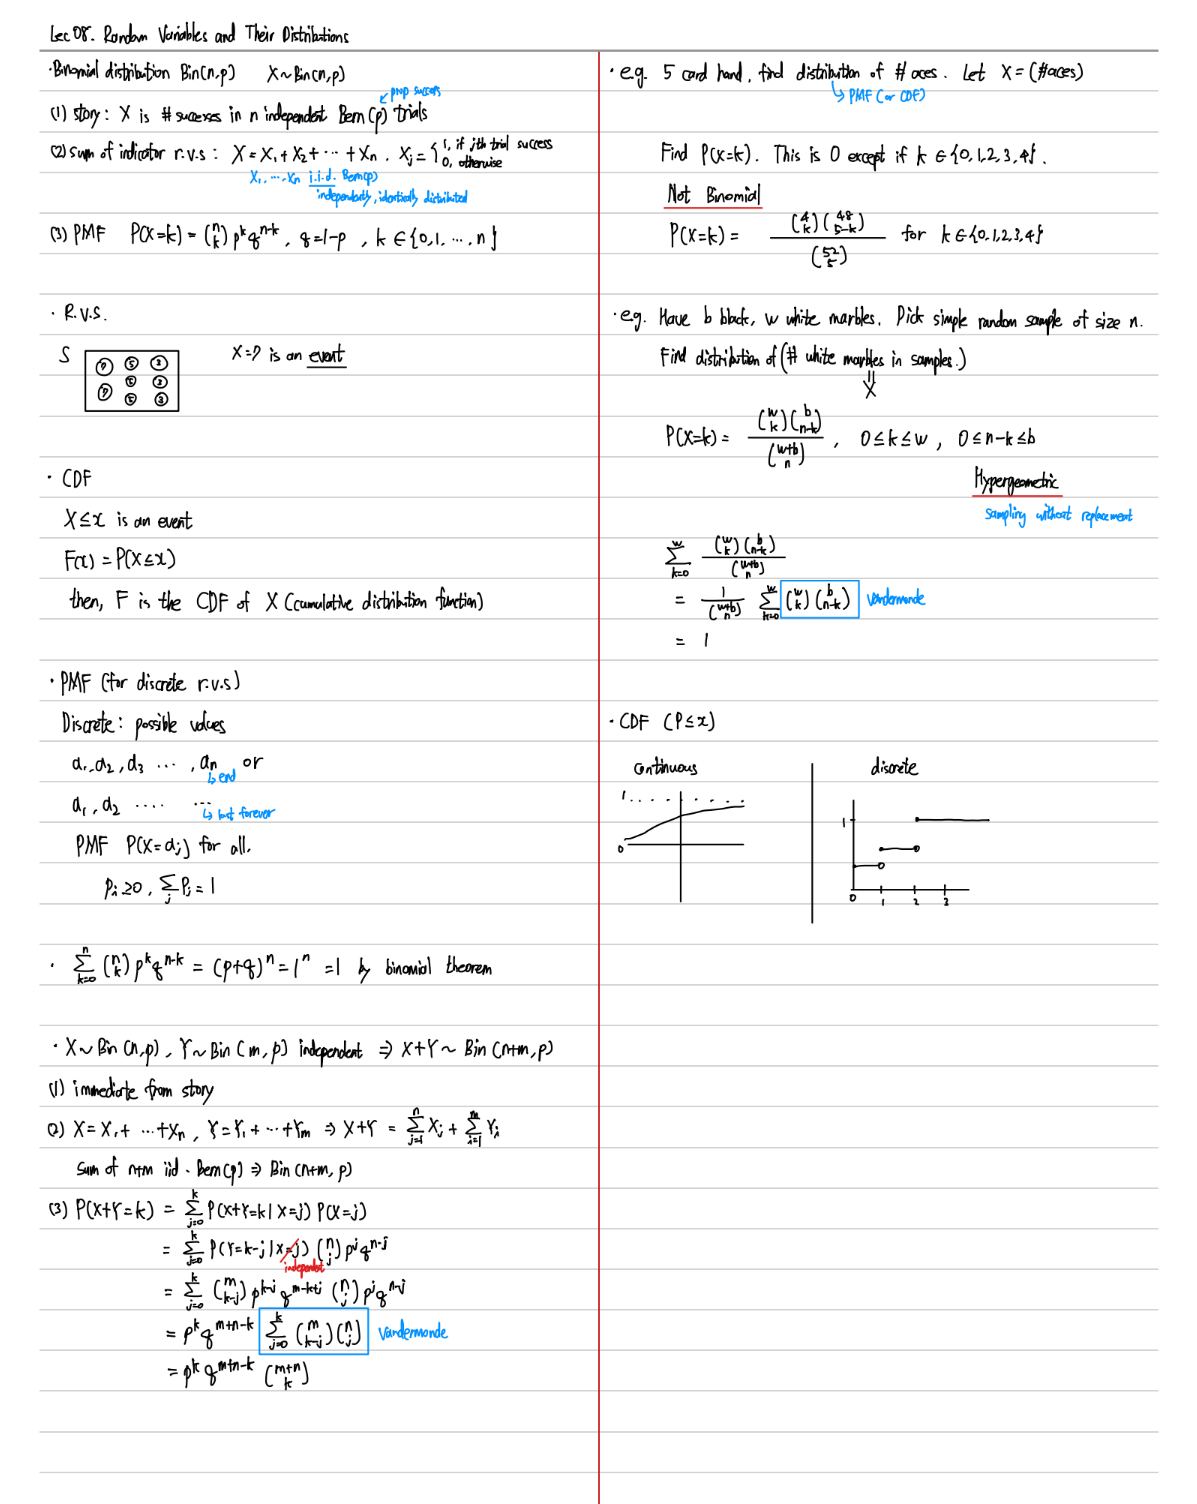 Lec 08. Random Variables and Their Distributions
· Binomial distribution Bin(n,p)   X ~ Bin(n,p)
prop success
(1) story : X is # successes in n independent Bern(p) trials
(2) sum of indicator r.v.s : X = X₁ + X₂ + ··· + Xₙ . Xⱼ = { 1, if jth trial success
0, otherwise
X₁, ···, Xₙ i.i.d. Bern(p)
independently, identically distributed
(3) PMF   P(X=k) = (n k) pᵏ qⁿ⁻ᵏ , q = 1-p , k ∈ {0, 1, ···, n}
· R.V.S.
S
7 5 3
5 3
7
5 3
X=7 is an event
· CDF
X ≤ x is an event
F(x) = P(X ≤ x)
then, F is the CDF of X (cumulative distribution function)
· PMF (for discrete r.v.s)
Discrete : possible values
a₁, a₂, a₃ ··· , aₙ or
↳ end
a₁, a₂ ···· ···
↳ last forever
PMF   P(X=aⱼ) for all.
Pᵢ ≥ 0 , Σⱼ Pⱼ = 1
· Σₖ₌₀ⁿ (n k) pᵏ qⁿ⁻ᵏ = (p+q)ⁿ = 1ⁿ = 1 by binomial theorem
· X ~ Bin (n,p) , Y ~ Bin (m, p) independent ⇒ X+Y ~ Bin (n+m, p)
(1) immediate from story
(2) X = X₁ + ··· + Xₙ , Y = Y₁ + ··· + Yₘ ⇒ X+Y = Σⱼ₌₁ⁿ Xⱼ + Σᵢ₌₁ᵐ Yᵢ
Sum of n+m iid. Bern(p) ⇒ Bin (n+m, p)
(3) P(X+Y=k) = Σⱼ₌₀ᵏ P(X+Y=k | X=j) P(X=j)
= Σⱼ₌₀ᵏ P(Y=k-j | X=j) (n j) pʲ qⁿ⁻ʲ
independent
= Σⱼ₌₀ᵏ (m k-j) pᵏ⁻ʲ qᵐ⁻ᵏ⁺ʲ (n j) pʲ qⁿ⁻ʲ
= pᵏ qᵐ⁺ⁿ⁻ᵏ Σⱼ₌₀ᵏ (m k-j) (n j)   Vandermonde
= pᵏ qᵐ⁺ⁿ⁻ᵏ (m+n k)
· e.g. 5 card hand, find distribution of # aces. Let X = (#aces)
↳ PMF (or CDF)
Find P(X=k). This is 0 except if k ∈ {0, 1, 2, 3, 4}.
Not Binomial
P(X=k) = (4 k) (48 5-k) / (52 5) for k ∈ {0, 1, 2, 3, 4}
· e.g. Have b black, w white marbles. Pick simple random sample of size n.
Find distribution of (# white marbles in samples.)
=
X
P(X=k) = (w k) (b n-k) / (w+b n) , 0 ≤ k ≤ w , 0 ≤ n-k ≤ b
Hypergeometric
sampling without replacement
Σₖ₌₀ʷ (w k) (b n-k) / (w+b n)
= 1 / (w+b n) Σₖ₌₀ʷ (w k) (b n-k)   Vandermonde
= 1
· CDF (P ≤ x)
continuous
discrete
1
0
1
0 1 2 3